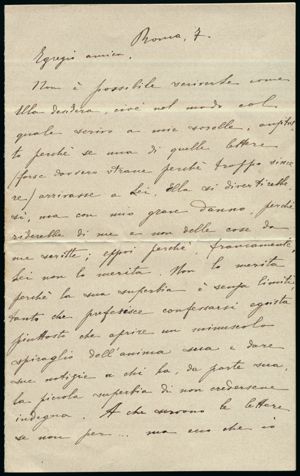 Roma, 7.
Egregio amico,
Non è possibile scriverle come
Ella desidera, cioè nel modo col
quale scrivo a mie sorelle, anzitut
to perchè se una di quelle lettere
(forse davvero strane perchè troppo since
re) arrivasse a Lei, Ella si divertireb
sì, ma con mio gran danno, perchè
riderebbe di me e non delle cose da
me scritte; eppoi perchè, francamente
Lei non lo merita. Non lo merita
perchè la sua superbia è senza limiti
tanto che preferisce confessarsi egoista
piuttosto che aprire un minuscolo
spiraglio dell'anima sua e dare
sue notizie a chi ha, da parte sua,
la piccola superbia di non credersene
indegna. A che servono le lettere
se non per... ma ecco che io